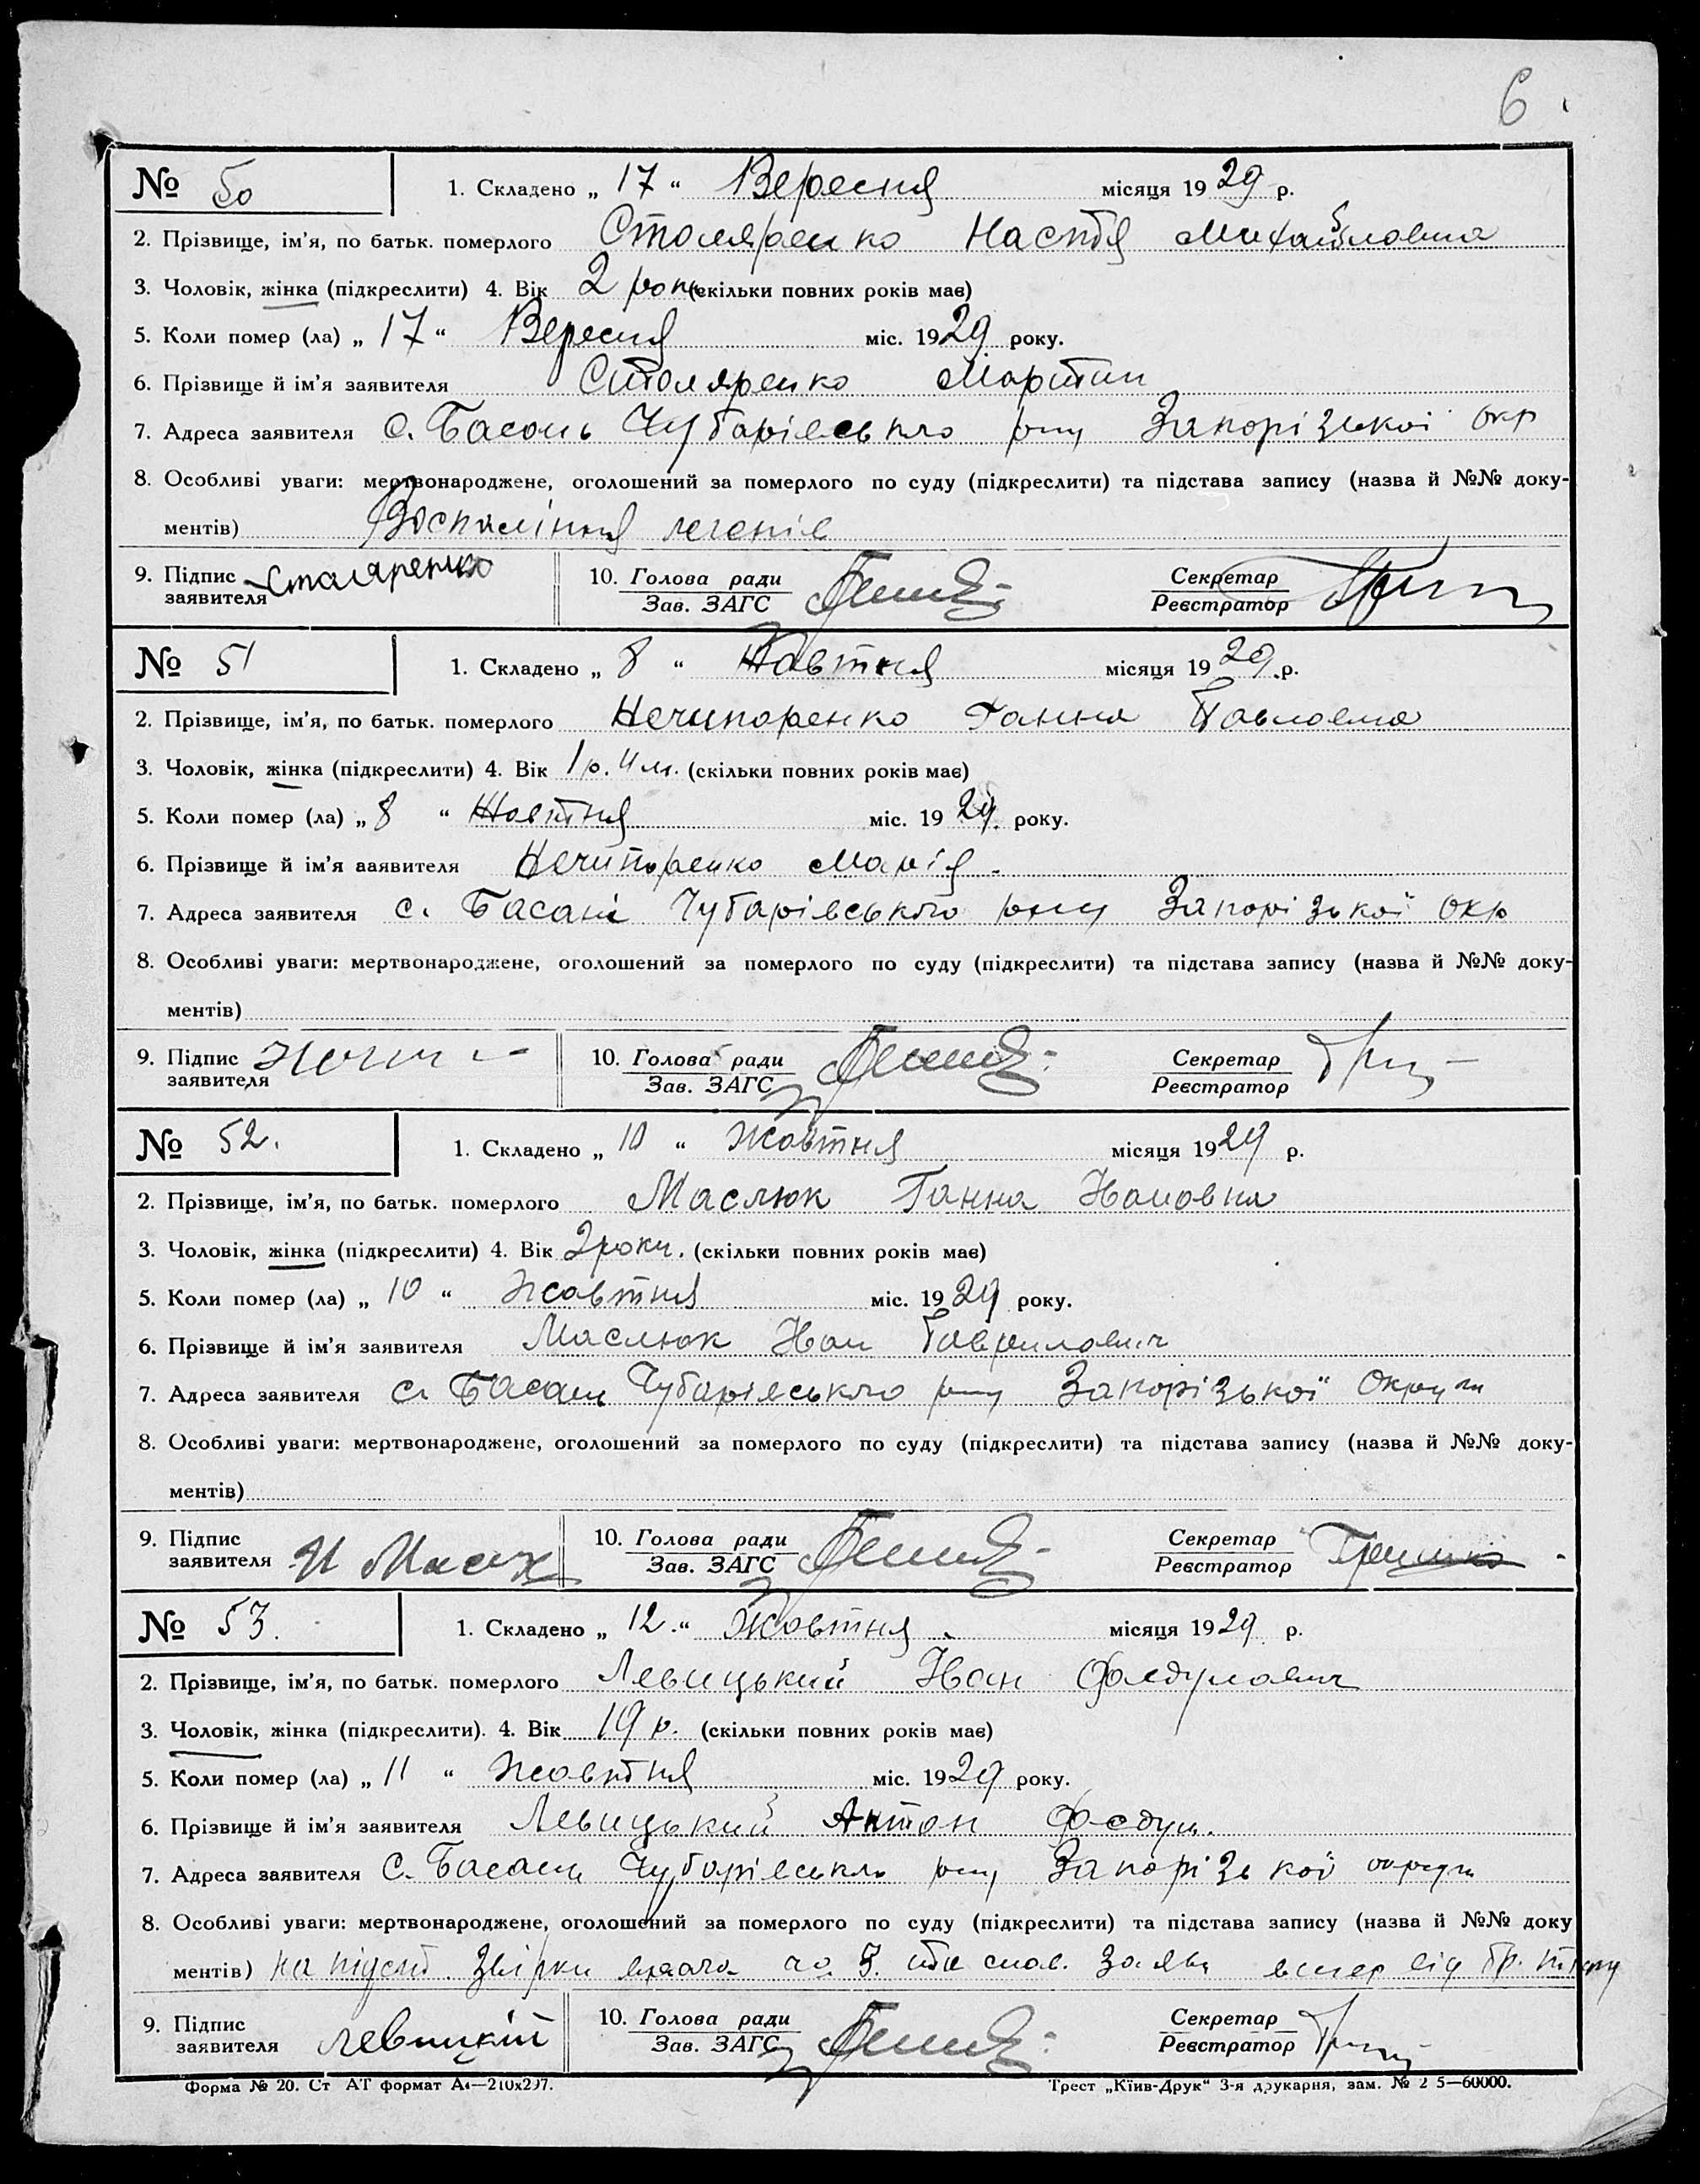 6.
№ 50 1. Складено „ 17 “ Вересня місяця 1929 р.
2. Прізвище, ім’я, по батьк. померлого Столяренко Настя Михайловна
3. Чоловік, жінка (підкреслити) 4. Вік 2 роки (скільки повних років має)
5. Коли помер (ла) „ 17 “ Вересня міс. 1929 року.
6. Прізвище й ім’я заявителя Столяренко Мартин
7. Адреса заявителя с. Басань Чубарівського р-ну Запорізької окр
8. Особливі уваги: мертвонароджене, оголошений за померлого по суду (підкреслити) та підстава запису (назва й №№ доку-
ментів) Воспаління легенів
9. Підпис заявителя Столяренко 10. Голова ради Зав. ЗАГС Секретар Реєстратор
№ 51 1. Складено „ 8 “ Жовтня місяця 1929 р.
2. Прізвище, ім’я, по батьк. померлого Нечипоренко Ганна Павловна
3. Чоловік, жінка (підкреслити) 4. Вік 1 р. 4 м. (скільки повних років має)
5. Коли помер (ла) „ 8 “ Жовтня міс. 1929. року.
6. Прізвище й ім’я ааявителя Нечипоренко Марія
7. Адреса заявителя с. Басані Чубарівського р-ну Запорізької окр
8. Особливі уваги: мертвонароджене, оголошений за померлого по суду (підкреслити) та підстава запису (назва й №№ доку-
ментів)
9. Підпис заявителя 10. Голова ради Зав. ЗАГС Секретар Реєстратор
№ 52. 1. Складено „ 10 “ Жовтня місяця 1929 р.
2. Прізвище, ім’я, по батьк. померлого Маслюк Ганна Івановна
3. Чоловік, жінка (підкреслити) 4. Вік 2 роки. (скільки повних років має)
5. Коли помер (ла) „ 10 “ Жовтня міс. 1929 року.
6. Прізвище й ім’я заявителя Маслюк Іван Гаврилович
7. Адреса заявителя с. Басань Чубарівського р-ну Запорізької Округи
8. Особливі уваги: мертвонароджене, оголошений за померлого по суду (підкреслити) та підстава запису (назва й №№ доку-
ментів)
9. Підпис заявителя И Маслюк 10. Голова ради Зав. ЗАГС Секретар Реєстратор
№ 53. 1. Складено „ 12. “ Жовтня місяця 1929 р.
2. Прізвище, ім’я, по батьк. померлого Левицький Іван Федулович
3. Чоловік, жінка (підкреслити). 4. Вік 19 р. (скільки повних років має)
5. Коли помер (ла) „ 11 “ Жовтня міс. 1929 року.
6. Прізвище й ім’я заявителя Левицький Антон Федул.
7. Адреса заявителя с. Басань Чубарівсько р-ну Запорізької округи
8. Особливі уваги: мертвонароджене, оголошений за померлого по суду (підкреслити) та підстава запису (назва й №№ доку
ментів) на підст. заяви від
9. Підпис заявителя Левицкій 10. Голова ради Зав. ЗАГС Секретар Реєстратор
Форма № 20. Ст АТ формат А4—210х297. Трест „Київ-Друк“ 3-я друкарня, зам. № 2 5—60000.